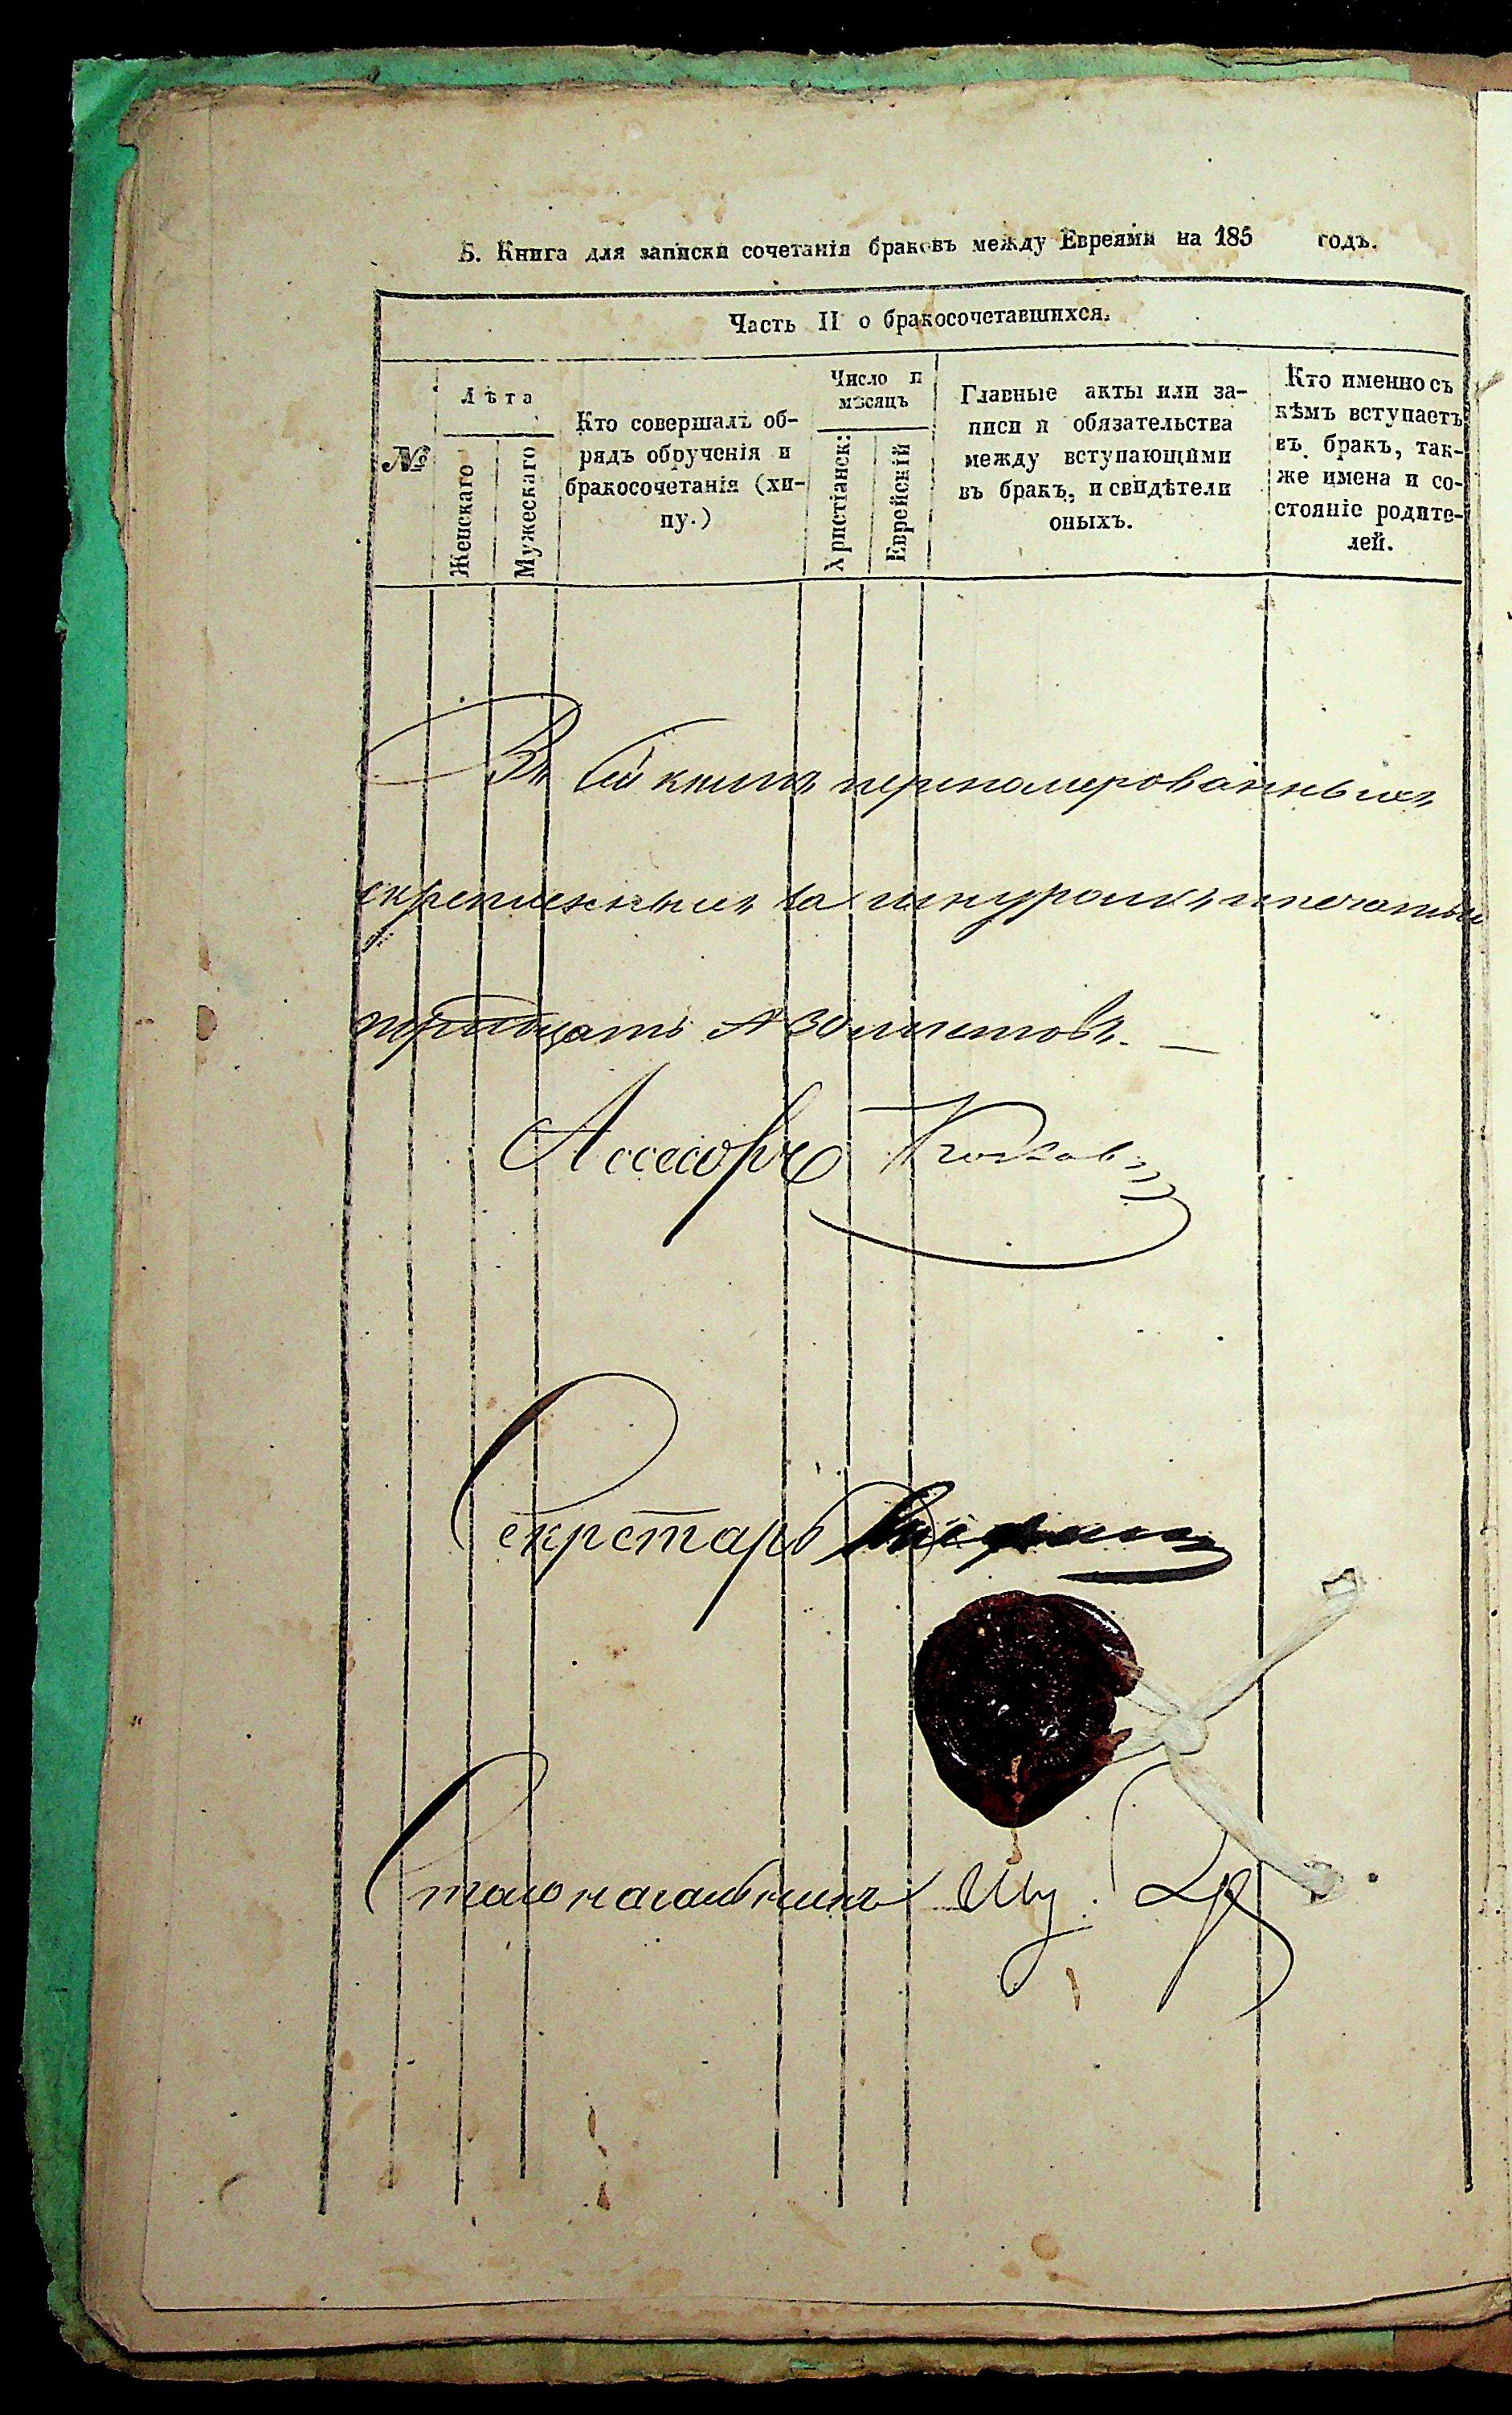 Б. Книга для записки сочетанія браковъ между Евреями на 185 годъ.
Часть II о бракосочетавшихся.
№
Лѣта
Женскаго
Мужескаго
Кто совершалъ об-
рядъ обрученія и
бракосочетанія (хи-
пу.)
Число и
мѣсяцъ
Христіанск:
Еврейскій
Главные акты или за-
писи и обязательства
между вступающими
въ бракъ, и свидѣтели
оныхъ.
Кто именно съ
кѣмъ вступаетъ
въ бракъ, так-
же имена и со-
стояніе родите-
лей.
Въ сей книгѣ перенумерованныхъ
скрепленныхъ за шнуромъ и печатью
тридцать 30 листовъ.
Ассесоръ
Секретарь
Столоначальникъ